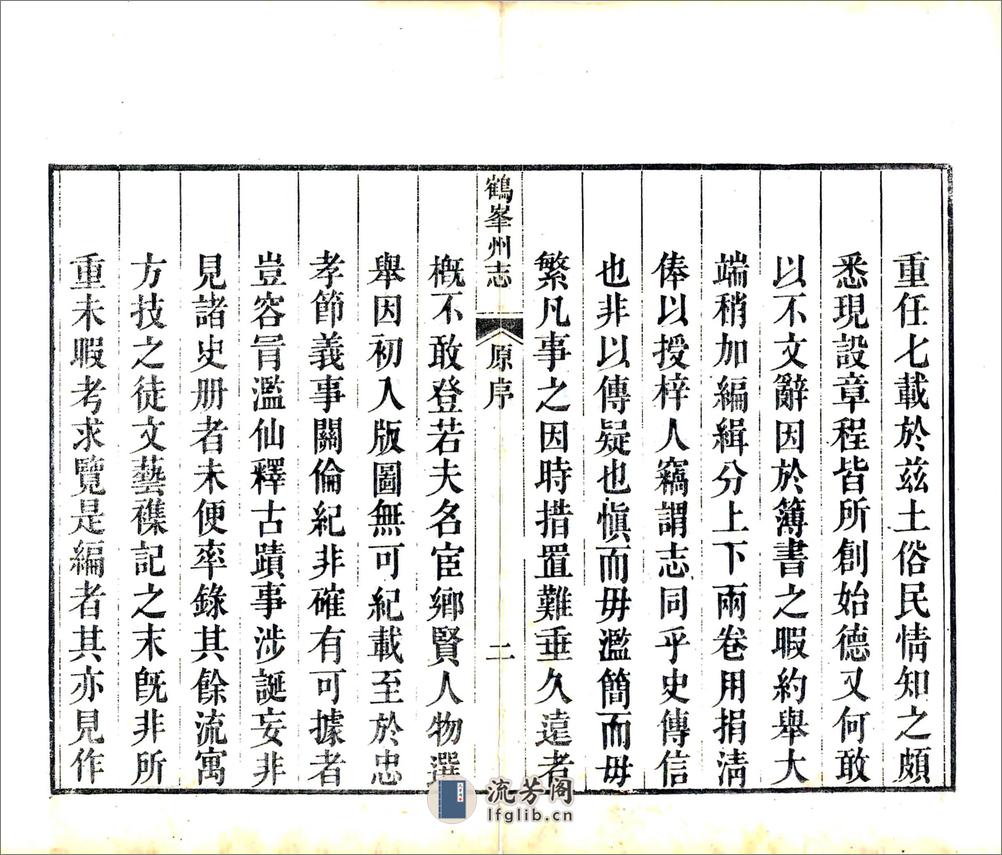 重任七載於兹土俗民情知之頗
悉現設章程皆所創始德又何敢
以不文辭因於簿書之暇約舉大
端稍加編緝分上下兩卷用捐淸
俸以授梓人竊謂志同乎史傳信
也非以傳疑也愼而毋濫簡而毋
繁凡事之因時措置難垂久遠者
鶴峯州志
原序
二
槪不敢登若夫名宦鄉賢人物選
舉因初入版圖無可紀載至於忠
孝節義事關倫紀非確有可據者
豈容冒濫仙釋古蹟事涉誕妄非
見諸史册者未便率錄其餘流寓
方技之徒文藝襍記之末旣非所
重未暇考求覽是編者其亦見作
流芳阁
lfglib.cn